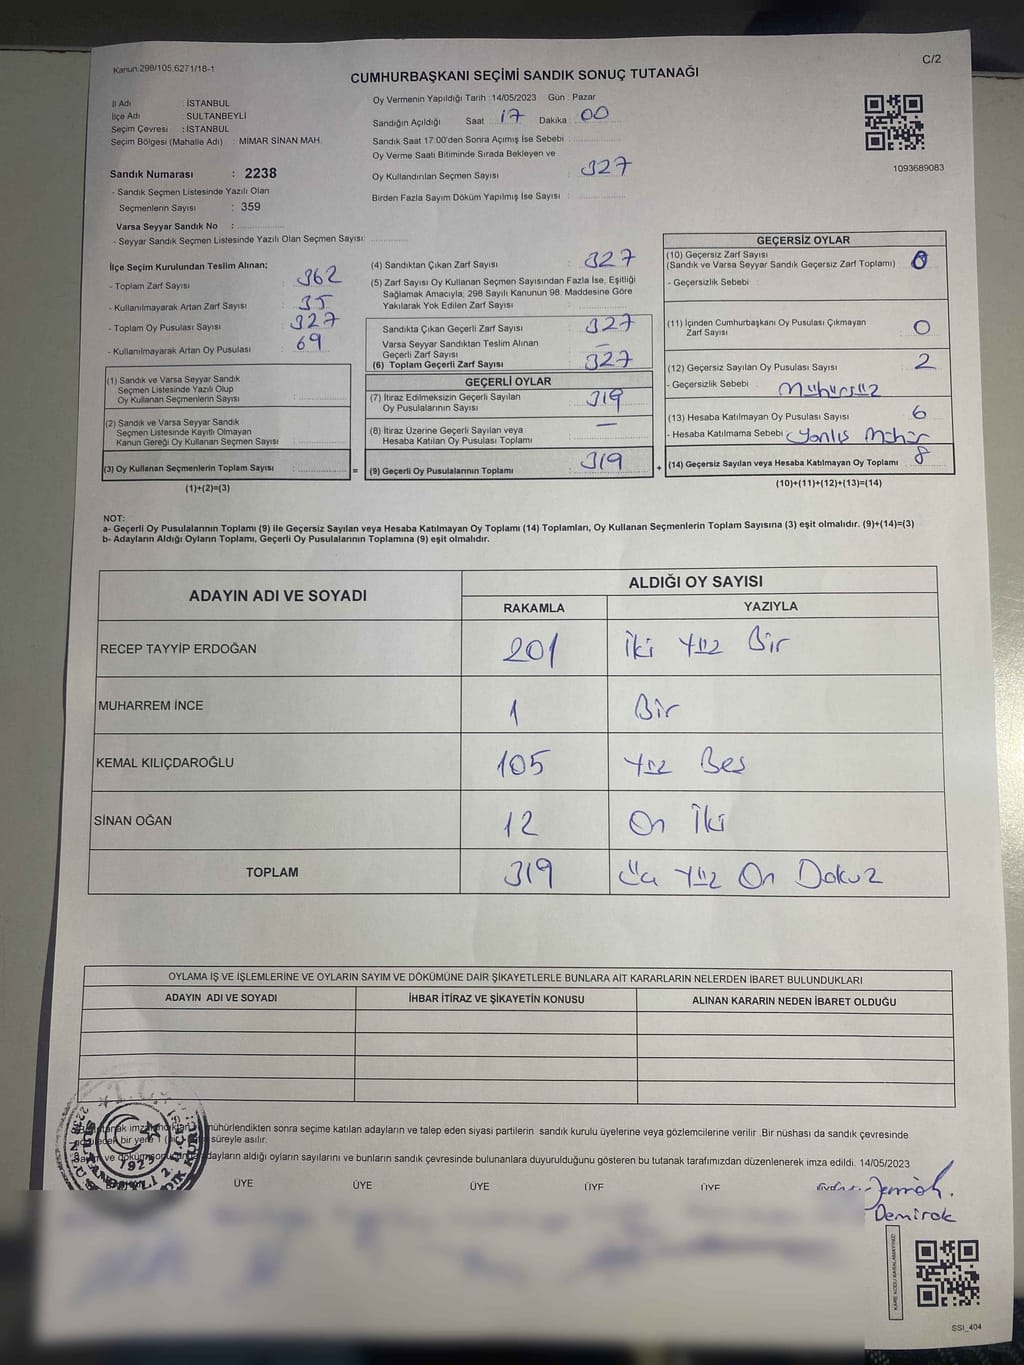 Kanun.298/105.6271/18-1
C/2
CUMHURBAŞKANI SEÇİMİ SANDIK SONUÇ TUTANAĞI
İl Adı : İSTANBUL
İlçe Adı : SULTANBEYLİ
Seçim Çevresi : İSTANBUL
Seçim Bölgesi (Mahalle Adı) : MİMAR SİNAN MAH.
Sandık Numarası : 2238
- Sandık Seçmen Listesinde Yazılı Olan
Seçmenlerin Sayısı : 359
Varsa Seyyar Sandık No :
- Seyyar Sandık Seçmen Listesinde Yazılı Olan Seçmen Sayısı:
Oy Vermenin Yapıldığı Tarih : 14/05/2023 Gün : Pazar
Sandığın Açıldığı Saat : 17 Dakika : 00
Sandık Saat 17:00'den Sonra Açımış İse Sebebi :
Oy Verme Saati Bitiminde Sırada Bekleyen ve
Oy Kullandırılan Seçmen Sayısı : 327
Birden Fazla Sayım Döküm Yapılmış İse Sayısı :
1093689083
İlçe Seçim Kurulundan Teslim Alınan;
- Toplam Zarf Sayısı : 362
- Kullanılmayarak Artan Zarf Sayısı : 35
- Toplam Oy Pusulası Sayısı : 327
- Kullanılmayarak Artan Oy Pusulası : 69
(1) Sandık ve Varsa Seyyar Sandık
Seçmen Listesinde Yazılı Olup
Oy Kullanan Seçmenlerin Sayısı :
(2) Sandık ve Varsa Seyyar Sandık
Seçmen Listesinde Kayıtlı Olmayan
Kanun Gereği Oy Kullanan Seçmen Sayısı :
(3) Oy Kullanan Seçmenlerin Toplam Sayısı :
(1)+(2)=(3)
(4) Sandıktan Çıkan Zarf Sayısı : 327
(5) Zarf Sayısı Oy Kullanan Seçmen Sayısından Fazla İse, Eşitliği
Sağlamak Amacıyla, 298 Sayılı Kanunun 98. Maddesine Göre
Yakılarak Yok Edilen Zarf Sayısı :
Sandıkta Çıkan Geçerli Zarf Sayısı : 327
Varsa Seyyar Sandıktan Teslim Alınan
Geçerli Zarf Sayısı : –
(6) Toplam Geçerli Zarf Sayısı : 327
GEÇERLİ OYLAR
(7) İtiraz Edilmeksizin Geçerli Sayılan
Oy Pusulalarının Sayısı : 319
(8) İtiraz Üzerine Geçerli Sayılan veya
Hesaba Katılan Oy Pusulası Toplamı : –
= (9) Geçerli Oy Pusulalarının Toplamı : 319
GEÇERSİZ OYLAR
(10) Geçersiz Zarf Sayısı
(Sandık ve Varsa Seyyar Sandık Geçersiz Zarf Toplamı) : 0
- Geçersizlik Sebebi :
(11) İçinden Cumhurbaşkanı Oy Pusulası Çıkmayan
Zarf Sayısı : 0
(12) Geçersiz Sayılan Oy Pusulası Sayısı : 2
- Geçersizlik Sebebi : Mühürsüz
(13) Hesaba Katılmayan Oy Pusulası Sayısı : 6
- Hesaba Katılmama Sebebi : Yanlış Mühür
+ (14) Geçersiz Sayılan veya Hesaba Katılmayan Oy Toplamı : 8
(10)+(11)+(12)+(13)=(14)
NOT:
a- Geçerli Oy Pusulalarının Toplamı (9) ile Geçersiz Sayılan veya Hesaba Katılmayan Oy Toplamı (14) Toplamları, Oy Kullanan Seçmenlerin Toplam Sayısına (3) eşit olmalıdır. (9)+(14)=(3)
b- Adayların Aldığı Oyların Toplamı, Geçerli Oy Pusulalarının Toplamına (9) eşit olmalıdır.
ADAYIN ADI VE SOYADI
ALDIĞI OY SAYISI
RAKAMLA YAZIYLA
RECEP TAYYİP ERDOĞAN 201 İki Yüz Bir
MUHARREM İNCE 1 Bir
KEMAL KILIÇDAROĞLU 105 Yüz Beş
SİNAN OĞAN 12 On İki
TOPLAM 319 Üç Yüz On Dokuz
OYLAMA İŞ VE İŞLEMLERİNE VE OYLARIN SAYIM VE DÖKÜMÜNE DAİR ŞİKAYETLERLE BUNLARA AİT KARARLARIN NELERDEN İBARET BULUNDUKLARI
ADAYIN ADI VE SOYADI İHBAR İTİRAZ VE ŞİKAYETİN KONUSU ALINAN KARARIN NEDEN İBARET OLDUĞU
mühürlendikten sonra seçime katılan adayların ve talep eden siyasi partilerin sandık kurulu üyelerine veya gözlemcilerine verilir .Bir nüshası da sandık çevresinde
bir yere süreyle asılır.
adayların aldığı oyların sayılarını ve bunların sandık çevresinde bulunanlara duyurulduğunu gösteren bu tutanak tarafımızdan düzenlenerek imza edildi. 14/05/2023
ÜYE ÜYE ÜYE ÜYE ÜYE
Demirok
SSI_404